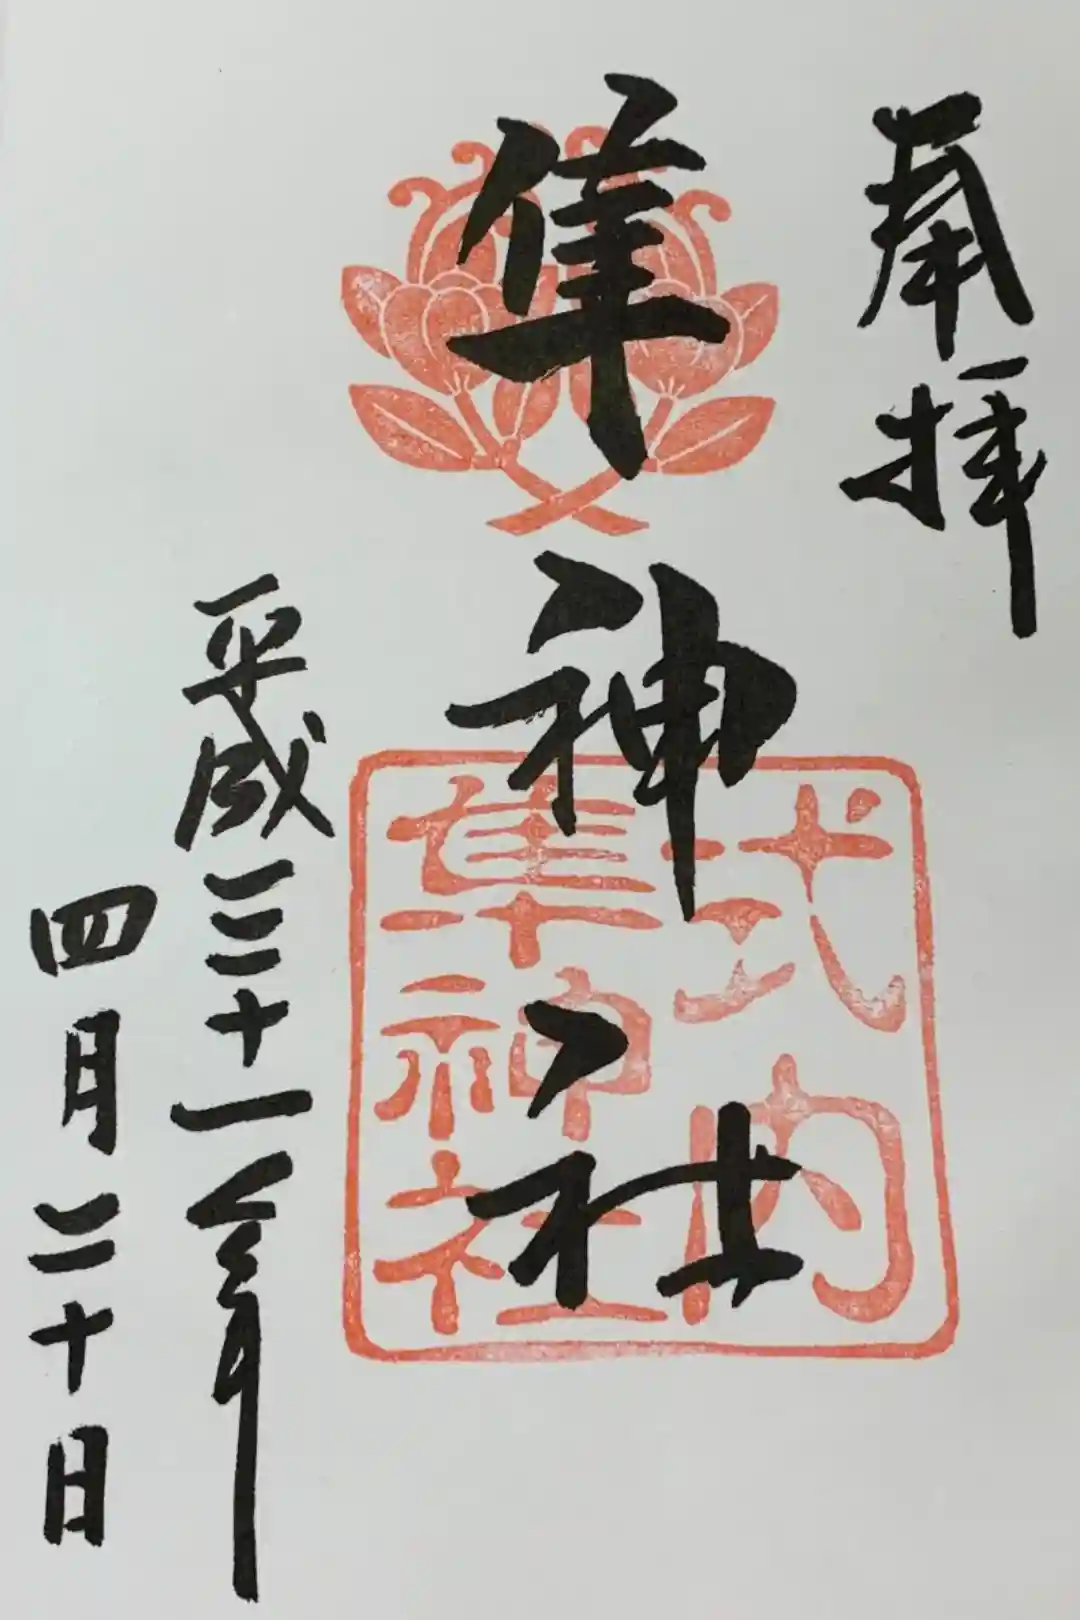 奉拝
隼神社
式内
隼神社
平成三十一年
四月二十日